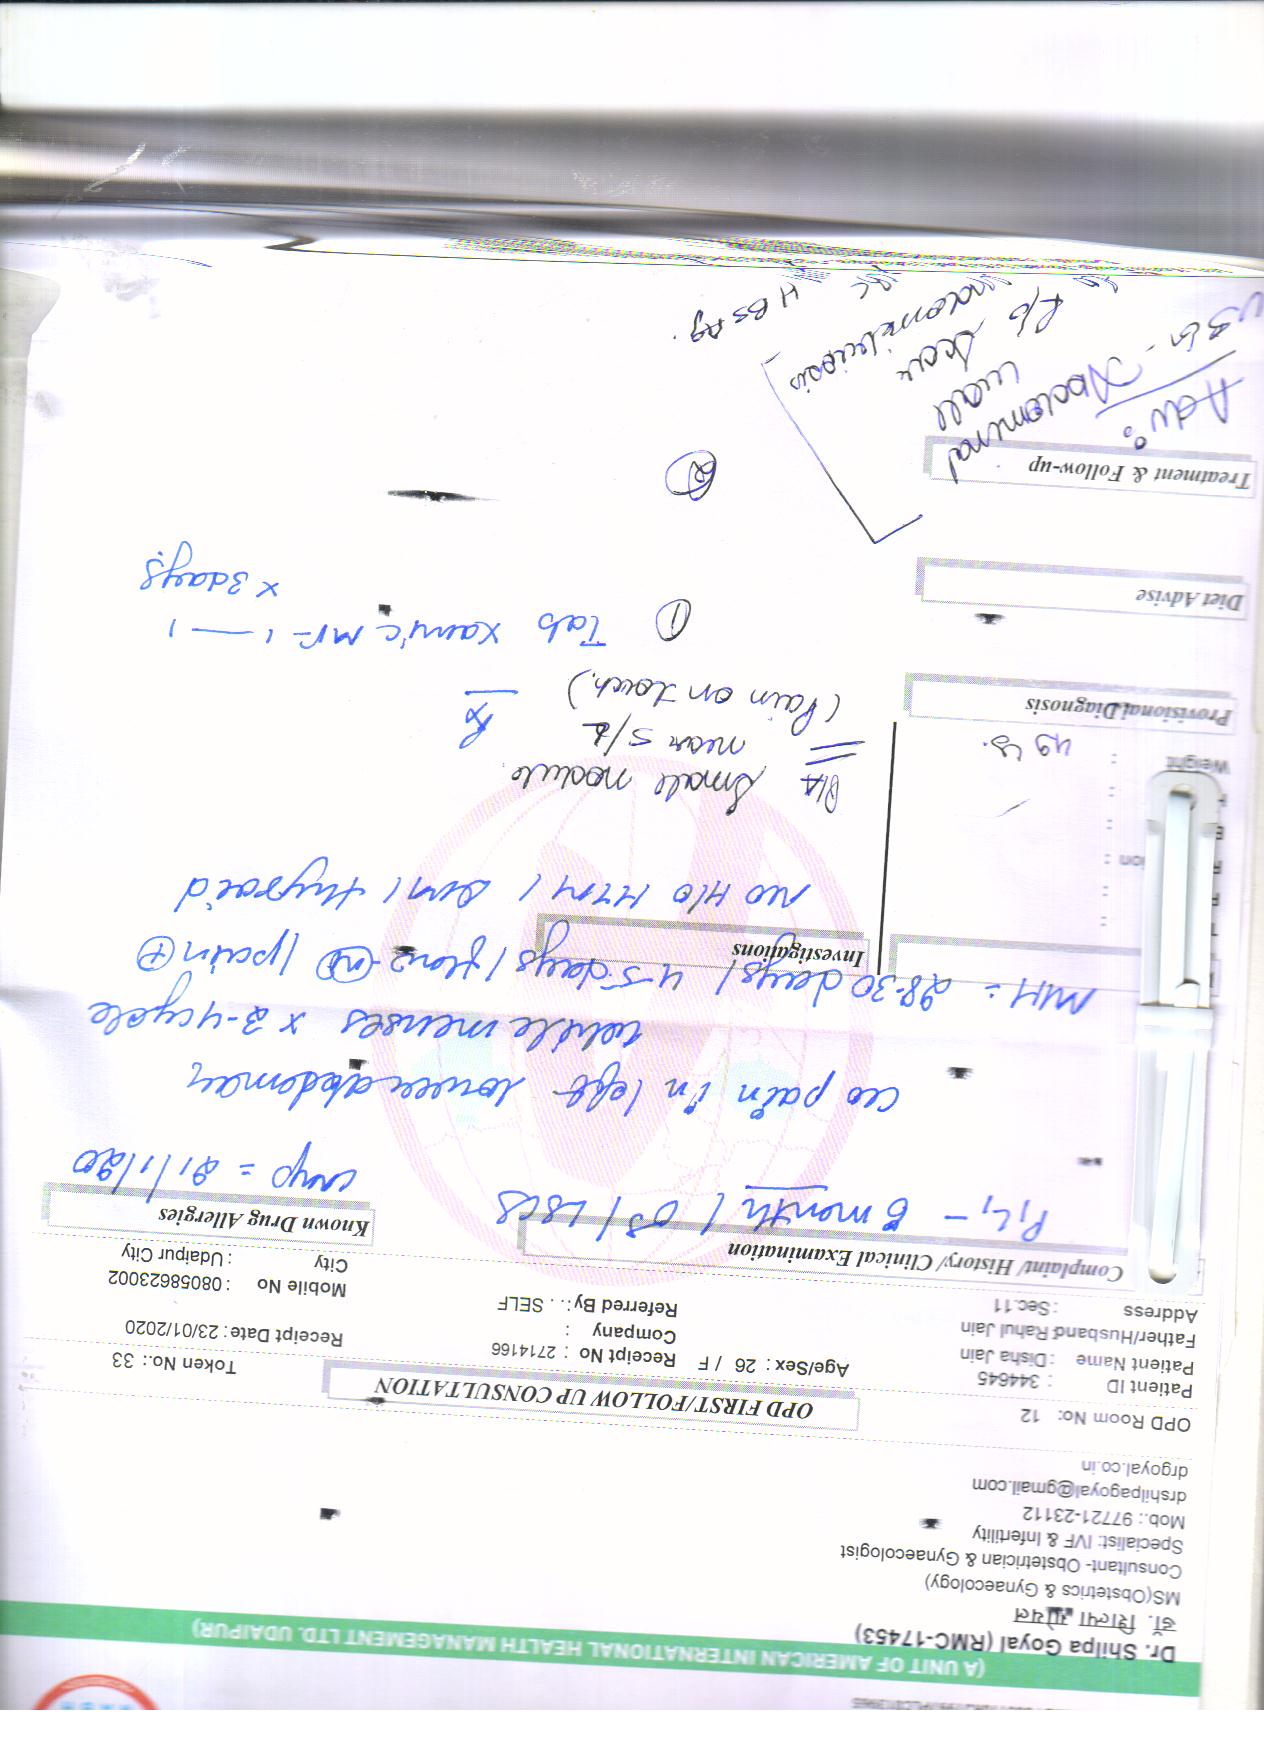 (A UNIT OF AMERICAN INTERNATIONAL HEALTH MANAGEMENT LTD. UDAIPUR)
Dr. Shilpa Goyal (RMC-17453)
डॉ. शिल्पा गोयल
MS(Obstetrics & Gynaecology)
Consultant- Obstetrician & Gynaecologist
Specialist: IVF & Infertility
Mob.: 97721-23112
drshilpagoyal@gmail.com
drgoyal.co.in
OPD Room No: 12
OPD FIRST/FOLLOW UP CONSULTATION
Token No.: 33
Patient ID : 344645
Age/Sex : 26 / F
Receipt No : 2714166
Receipt Date : 23/01/2020
Patient Name : Disha Jain
Company :
Mobile No : 08058623002
Father/Husband : Rahul Jain
Referred By : . . SELF
City : Udaipur City
Address : Sec.11
Complaint/ History/ Clinical Examination
Known Drug Allergies
P1L1 - 6 month / / LSCS
LMP = 21/1/20
c/o pain in left lower abdomen
while menses x 3-4 cycle
M/H = 28-30 days / 4-5 days / flow (N) / pain (+)
Investigations
No H/o HTN / DM / thyroid
P/A Small nodule
near S/L
(Pain on touch)
Weight : 49
Provisional Diagnosis
Rx
① Tab MR - 1 — 1
x 3 days
Diet Advise
②
Treatment & Follow-up
Adv:
USG - Abdominal
wall
R/o Scar
endometriosis
HBsAg.